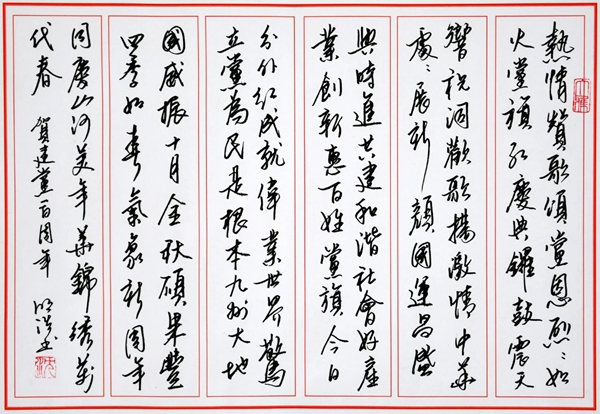 熱情贊歌頌黨恩烈々如
火黨旗紅慶典鑼鼓震天
響祝詞歡歌揚激情中華
處々展新顏國運昌盛
與時進共建和諧社會好
業創新惠百姓黨旗今日
分外紅成就偉業世界驚
立黨為民是根本九州大地
國威振十月金秋碩果豐
四季如春氣象新周年
同慶山河美年華錦繡萬
代春 賀建黨百周年 書